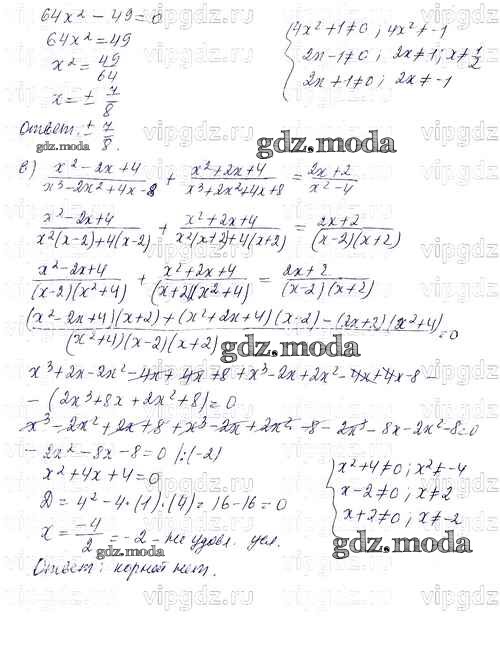 64x² - 49 = 0
64x² = 49
x² = 49/64
x = ± 7/8
Ответ: ± 7/8.
{4x² + 1 ≠ 0; 4x² ≠ -1
2x - 1 ≠ 0; 2x ≠ 1; x ≠ 1/2
2x + 1 ≠ 0; 2x ≠ -1
gdz.moda
в) (x² - 2x + 4)/(x³ - 2x² + 4x - 8) + (x² + 2x + 4)/(x³ + 2x² + 4x + 8) = (2x + 2)/(x² - 4)
(x² - 2x + 4)/(x²(x-2) + 4(x-2)) + (x² + 2x + 4)/(x²(x+2) + 4(x+2)) = (2x + 2)/((x-2)(x+2))
(x² - 2x + 4)/((x-2)(x²+4)) + (x² + 2x + 4)/((x+2)(x²+4)) = (2x + 2)/((x-2)(x+2))
((x² - 2x + 4)(x+2) + (x² + 2x + 4)(x-2) - (2x+2)(x²+4))/((x²+4)(x-2)(x+2)) = 0
gdz.moda
x³ + 2x - 2x² - 4x + 4x + 8 + x³ - 2x + 2x² - 4x + 4x - 8 -
- (2x³ + 8x + 2x² + 8) = 0
x³ - 2x² + 2x + 8 + x³ - 2x + 2x² - 8 - 2x³ - 8x - 2x² - 8 = 0
- 2x² - 8x - 8 = 0 |:(-2)
x² + 4x + 4 = 0
D = 4² - 4·(1)·(4) = 16 - 16 = 0
x = -4/2 = -2 - не удовл. усл.
Ответ: корней нет.
{x² + 4 ≠ 0; x² ≠ -4
x - 2 ≠ 0; x ≠ 2
x + 2 ≠ 0; x ≠ -2
gdz.moda
gdz.moda
vipgdz.ru